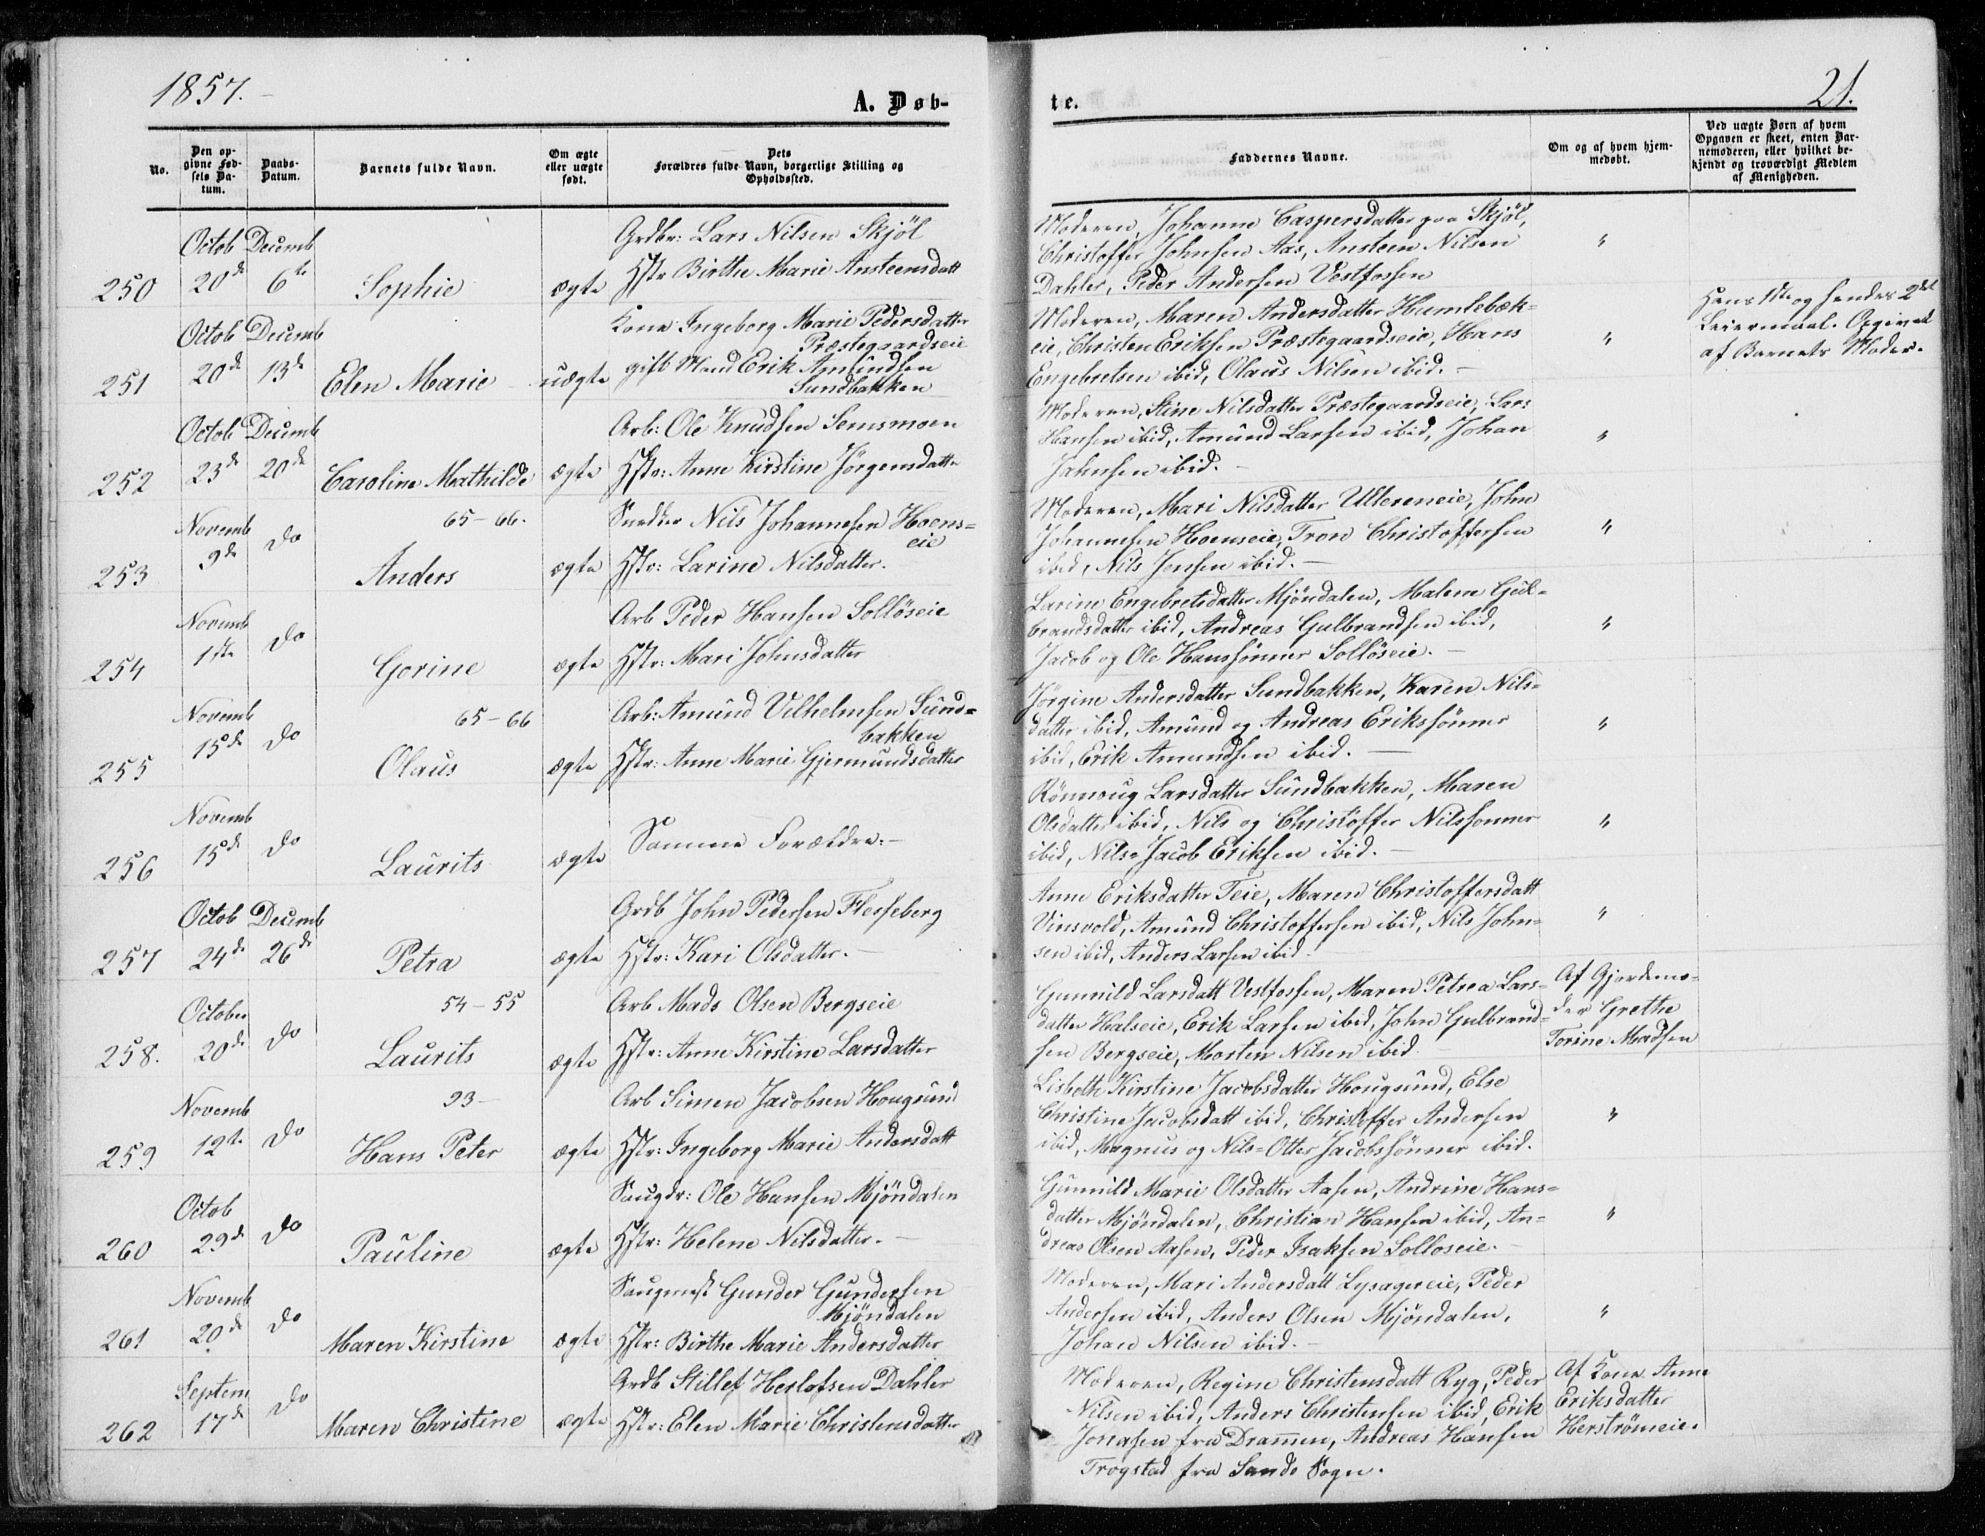 1857.
A. Døb-
No.
Den op-
givne Fød-
sels Da-
tum.
Daabs-
Datum.
Barnets fulde Navn.
Om ægte
eller uægte
født.
Dets
Forældres fulde Navn, borgerlige Stilling og
Opholdssted.
250
Octob
20de
Decemb
6te
Sophie
ægte
Grdbr: Lars Nilsen Skjöl
Hstr Birthe Marie Ansteensdatt
251
Octob
20de
Decemb
13de
Elen Marie
uægte
Kone Ingeborg Marie Pedersdatter
Præstegaardseie
gift Mand Erik Amundsen
Sundbakken
252
Octob
23de
Decemb
20de
Caroline Mathilde
ægte
Arb: Ole Knudsen Semsmoen
Hstr: Anne Kirstine Jörgensdatter
253
Novemb
9de
do
65-66.
Anders
ægte
Nils Johannesen Hoens=
eie
Hstr: Larine Nilsdatter.
254
Novemb
1ste
do
Gorine
ægte
Arb Peder Hansen Sollöseie
Hstr: Mari Johnsdatter
255
Novemb
15de
do
65-66
Olaus
ægte
Arb: Amund Vilhelmsen Sund=
bakken
Hstr: Anne Marie Gjermundsdatter
256
Novemb
15de
do
Laurits
ægte
Samme Forældre.-
257
Octob
24de
Decemb
26de
Petra
ægte
Grdb John Pedersen Flesseberg
Hstr: Kari Olsdatter.-
258.
October
20de
do
54-55
Laurits
ægte
Arb Mads Olsen Bergseie
Hstr: Anne Kirstine Larsdatter
259
Novemb
12te
do
93-
Hans Peter
ægte
Arb Simen Jacobsen Hougsund
Hstr: Ingeborg Marie Andersdatt
260
Octob
29de
do
Pauline
ægte
Saugdr: Ole Hansen Mjöndalen
Hstr: Helene Nilsdatter.-
261
Novemb
20de
do
Maren Kirstine
ægte
Saugmest Gunder Gundersen
Mjöndalen
Hstr: Birthe Marie Andersdatter
262
Septem
17de
do
Maren Christine
ægte
Grdb Stillef Herlofsen Dahler
Hstr: Elen Marie Christensdatter
te.
21.
Faddernes Navne.
Om og af hvem hjem-
medøbt.
Ved uægte Børn af hvem
Opgaven er skeet, enten Bar-
nemoderen, eller hvilket be-
kjendt og troværdigt Medlem
af Menigheden.
Moderen, Johanne Caspersdatter paa Skjöl,
Christoffer Johnsen Aas, Ansteen Nilsen
Dahler, Peder Andersen Vestfossen
"
Moderen, Maren Andersdatter Humlebæk=
eie, Christen Eriksen Præstegaardseie, Hans
Engebretsen ibid, Olaus Nilsen ibid.-
"
Hans 1ste og hendes 2det
Leiermaal. Opgivet
af Barnets Moder.
Moderen, Stine Nilsdatter Præstegaardseie, Lars
Hansen ibid, Amund Larsen ibid, Johan
Johnsen ibid.-
"
Moderen, Mari Nilsdatter Ullereneie, John
Johannesen Hoenseie, Tron Christoffersen
ibid, Nils Jensen ibid.-
"
Larine Engebretsdatter Mjöndalen, Malene Gul=
brandsdatter ibid, Andreas Gulbrandsen ibid,
Jacob og Ole Hanssönner Sollöseie.-
"
Jörgine Andersdatter Sundbakken, Karen Nils=
datter ibid, Amund og Andreas Erikssönner
ibid, Erik Amundsen ibid.-
"
Rönnoug Larsdatter Sundbakken, Maren
Olsdatter ibid, Nils og Christoffer Nilssönner
ibid, Nils Jacob Eriksen ibid.-
"
Anne Eriksdatter Teie, Maren Christoffersdatt
Vinsvold, Amund Christoffersen ibid, Nils John=
sen ibid, Anders Larsen ibid
"
Gunnild Larsdatt Vestfossen, Maren Petrea Lars-
datter Halseie, Erik Larsen ibid, John Gulbrand=
sen Bergseie, Morten Nilsen ibid
Af Gjordemo-
der Grethe
Torine Madsen
Lisbeth Kirstine Jacobsdatter Hougsund, Else
Christine Jacobsdatt ibid, Christoffer Andersen
ibid, Magnus og Nils=Otter Jacobssönner ibid.
"
Gunnild Marie Olsdatter Aasen, Andrine Hans=
datter Mjöndalen, Christian Hansen ibid, An=
dreas Olsen Aasen, Peder Isaksen Solloseie.-
"
Moderen, Mari Andersdatt Lysagereie, Peder
Andersen ibid, Anders Olsen Mjöndalen,
Johan Nilsen ibid.-
"
Moderen, Regine Christensdatt Ryg, Peder
Nilsen ibid, Anders Christensen ibid, Erik
Jonasen fra Dramen, Andreas Hansen
Trogstad fra Sande Sogn.
Af Kone Anne
Eriksdatter
Herströmeie.